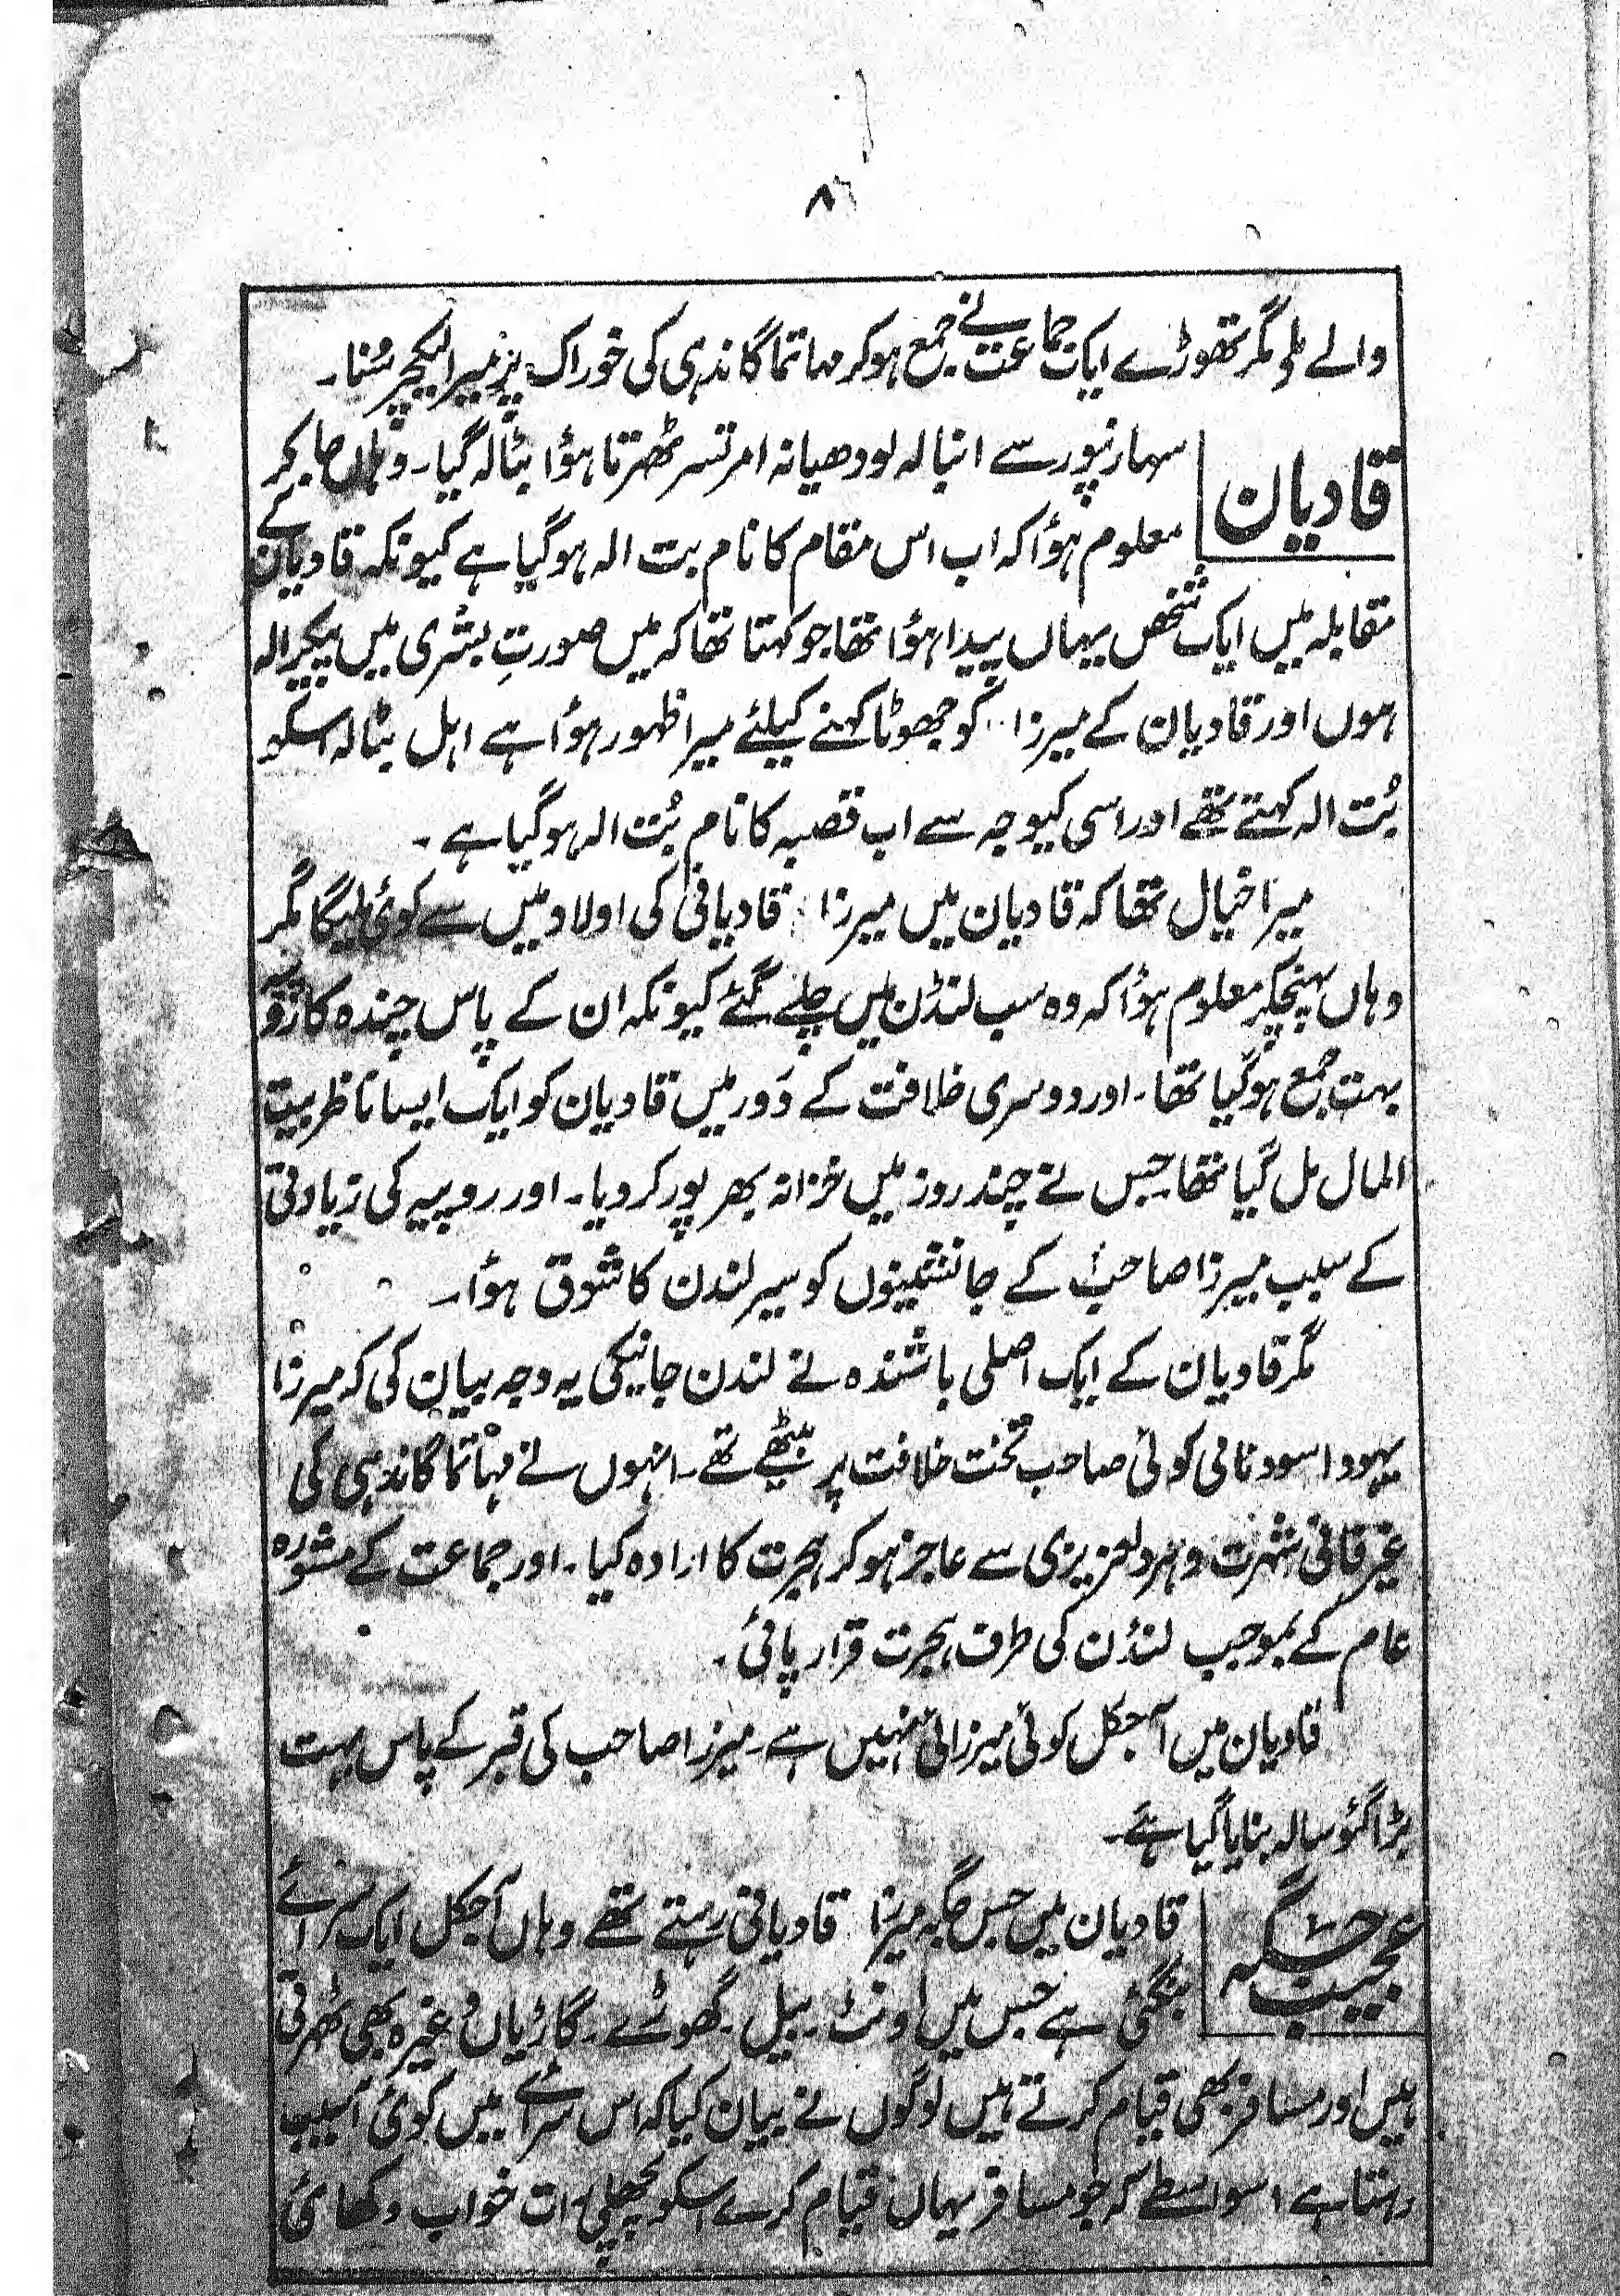 ۸
والے ملے مگر تھوڑے ایک جماعت نے جمع ہوکر مہاتما گاندہی کی خوراک پر میرا لیکچر سُنا۔
قادیان
سہارنپور سے انبالہ لودھیانہ امرتسر ٹھرتا ہؤا بٹالہ گیا۔ وہاں جاکر
معلوم ہؤا کہ اب اس مقام کا نام بت الہ ہوگیا ہے کیونکہ قادیان کے
مقابلہ میں ایک شخص یہاں پیدا ہؤا تھا جو کہتا تھا کہ میں صورتِ بشری میں پیکر الہ
ہوں اور قادیان کے میرزا کو جھوٹا کہنے کیلئے میرا ظہور ہؤا ہے اہل بٹالہ اسکو
بُت الہ کہتے تھے اور اسی کیوجہ سے اب قصبہ کا نام بُت الہ ہوگیا ہے۔
میرا خیال تھا کہ قادیان میں میرزا قادیانی کی اولاد میں سے کوئی ملیگا مگر
وہاں پہنچکر معلوم ہؤا کہ وہ سب لنڈن میں چلے گئے کیونکہ ان کے پاس چندہ کا روپیہ
بہت جمع ہوگیا تھا۔ اور دوسری خلافت کے دَور میں قادیان کو ایک ایسا ناظر بیت
المال مل گیا تھا جس نے چند روز میں خزانہ بھر پور کر دیا۔ اور روپیہ کی زیادتی
کے سبب میرزا صاحب کے جانشینوں کو سیر لندن کا شوق ہؤا۔
مگر قادیان کے ایک اصلی باشندہ نے لندن جانیکی یہ وجہ بیان کی کہ میرزا
یہودا سودنائی کوئی صاحب تخت خلافت پر بیٹھے تھے۔ انہوں نے مہاتما گاندہی کی
غیر فانی شہرت و ہر دلعزیزی سے عاجز ہو کر ہجرت کا ارادہ کیا۔ اور جماعت کے مشورہ
عام کے بموجب لنڈن کی طرف ہجرت قرار پائی۔
قادیان میں آجکل کوئی میرزائی نہیں ہے۔ میرزا صاحب کی قبر کے پاس بہت
بڑا گئو سالہ بنایا گیا ہے۔
عجیب جگہ
قادیان میں جس جگہ میرزا قادیانی رہتے تھے وہاں آجکل ایک سرائے
بنگئی ہے جس میں اونٹ۔ بیل۔ گھوڑے۔ گاڑیاں وغیرہ بھی ٹھرتی
ہیں اور مسافر بھی قیام کرتے ہیں لوگوں نے بیان کیا کہ اس سرائے میں کوئی آسیب
رہتا ہے اسواسطے کہ جو مسافر یہاں قیام کرے اسکو پچھلی رات خواب دکھائی